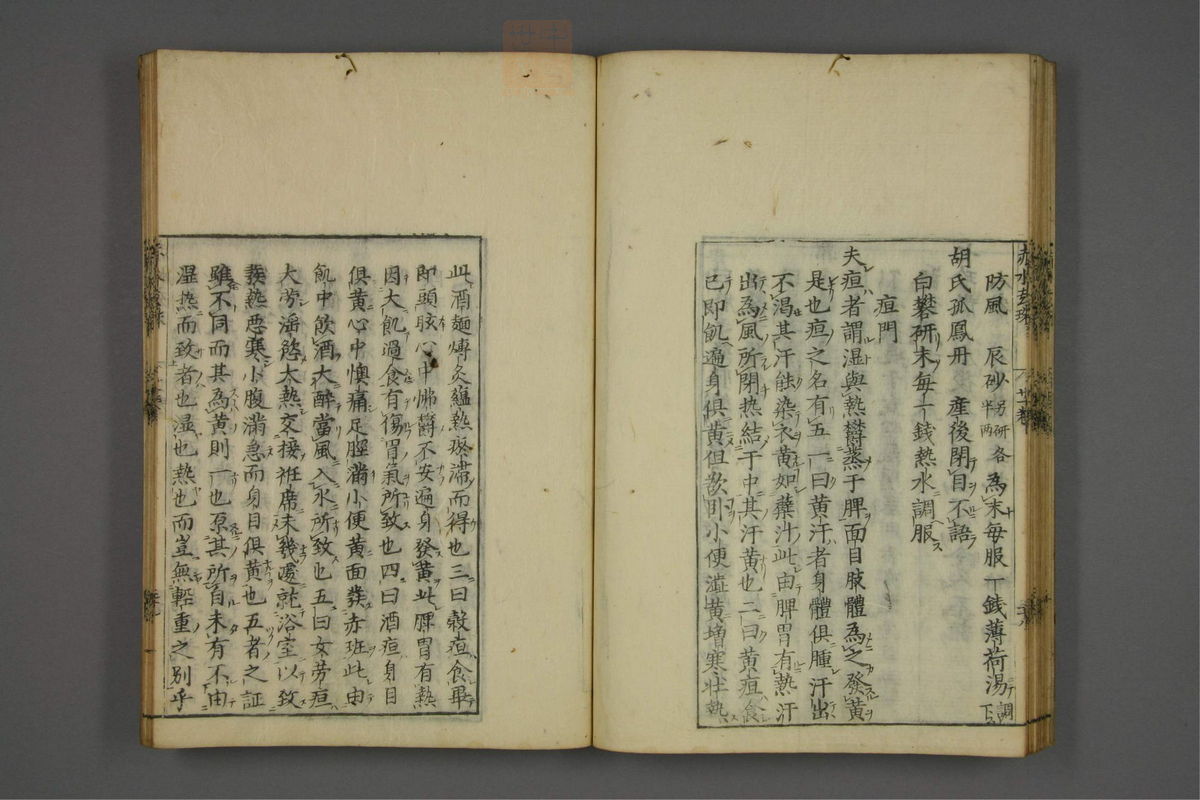 赤水玄珠
防風　辰砂 另研半両 各為末每服一錢薄荷湯調下
胡氏孤鳳丹　産後閉目不語
白礬研末每一錢熱水調服
疸門
夫疸者謂湿與熱欝蒸于脾面目肢體為之發黄
是也疸之名有五一曰黄汗者身體俱腫汗出
不渴其汗能染衣黄如蘗汁此由脾胃有熱汗
出為風所閉热結于中其汗黄也二曰黄疸食
已即飢遍身俱黄但欲卧小便澁黄增寒壮熱
此酒麺煿炙蘊熱瘀滞而得也三曰穀疸食畢
即頭眩心中怫欝不安遍身發黄此脾胃有熱
因大飢過食有傷胃氣所致也四曰酒疸身目
俱黄心中懊痛足脛滿小便黄面發赤班此由
飢中飲酒大醉當風入水所致也五曰女劳疸
大劳滛慾大熱交接衽席未幾遽就浴室以致
發熱悪寒小腹滿急而身目俱黄也五者之証
雖不同而其為黄則一也原其所自未有不由
湿热而致者也湿也熱也而豈無輕重之別乎